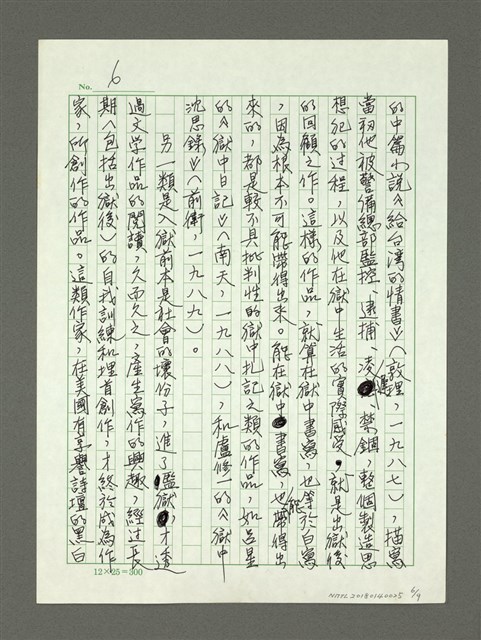 No. 6
的中篇小說《給台灣的情書》（敦理，一九八七），描寫
當初他被警備總部監控、逮捕、凌遲、禁錮，整個製造思
想犯的過程，以及他在獄中生活的實際感受，就是出獄後
的回顧之作。這樣的作品，就算在獄中書寫，也等於白寫
，因為根本不可能帶得出來。能在獄中書寫，也能帶得出
來的，都是較不具批判性的獄中札記之類的作品，如呂昱
的《獄中日記》（南天，一九八八），和盧修一的《獄中
沈思錄》（前衛，一九八九）。
另一類是入獄前本是社會的壞份子，進了監獄，才透
過文学作品的閱讀，久而久之，產生寫作的興趣，經过長
期（包括出獄後）的自我訓練和埋首創作，才終於成為作
家，所創作的作品。這類作家，在美國有享譽詩壇的黑白
12×25=300
NMTL20180140025 6/9